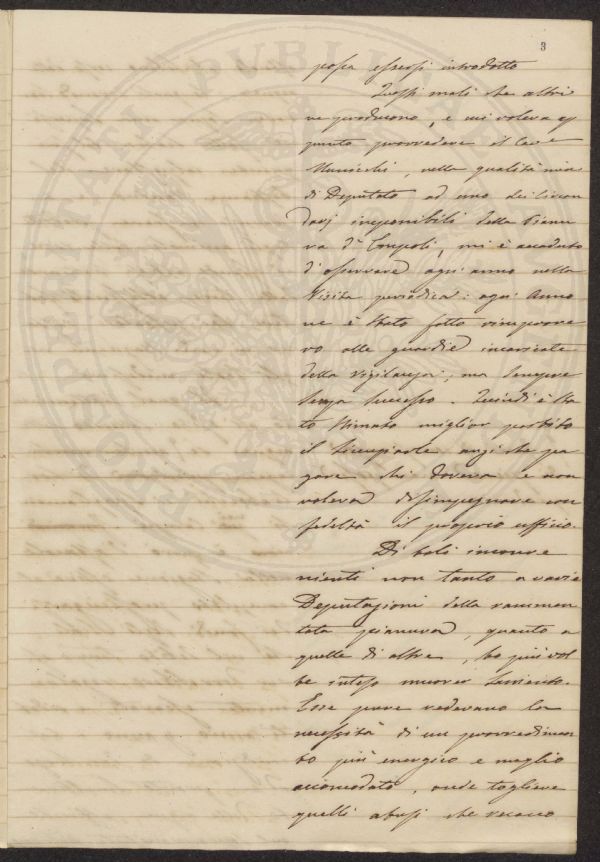 3
possa essersi introdotto
Questi mali che altri
ne producono, e cui voleva ap
punto provvedere il Cav.e
nella qualità mia
di Deputato ad uno dei Circon
darj imponibili della Pianu
ra di Empoli, mi è accaduto
d'osservare ogni anno nella
Visita periodica: ogni Anno
ne è stato fatto rimprove
ro alle guardie incaricate
della vigilanza; ma sempre
senza successo. Quindi è sta
to stimato miglior partito
il licenziarle anzi che pa
gare chi doveva e non
voleva disimpegnare con
fedeltà il proprio ufficio.
Di tali inconve
nienti non tanto a varie
Deputazioni della rammen
tata pianura, quanto a
quelle di altre, ho più vol
te inteso muover lamento.
Esse pure vedevano la
necessità di un provvedimen
to più energico e meglio
accomodato, onde togliere
quelli abusi che recano
PROSPERITATI PUBLICAE